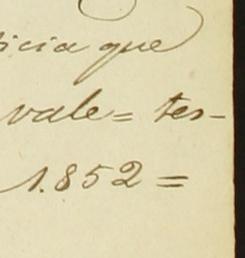 ticia que
vale= tes-
1.852=